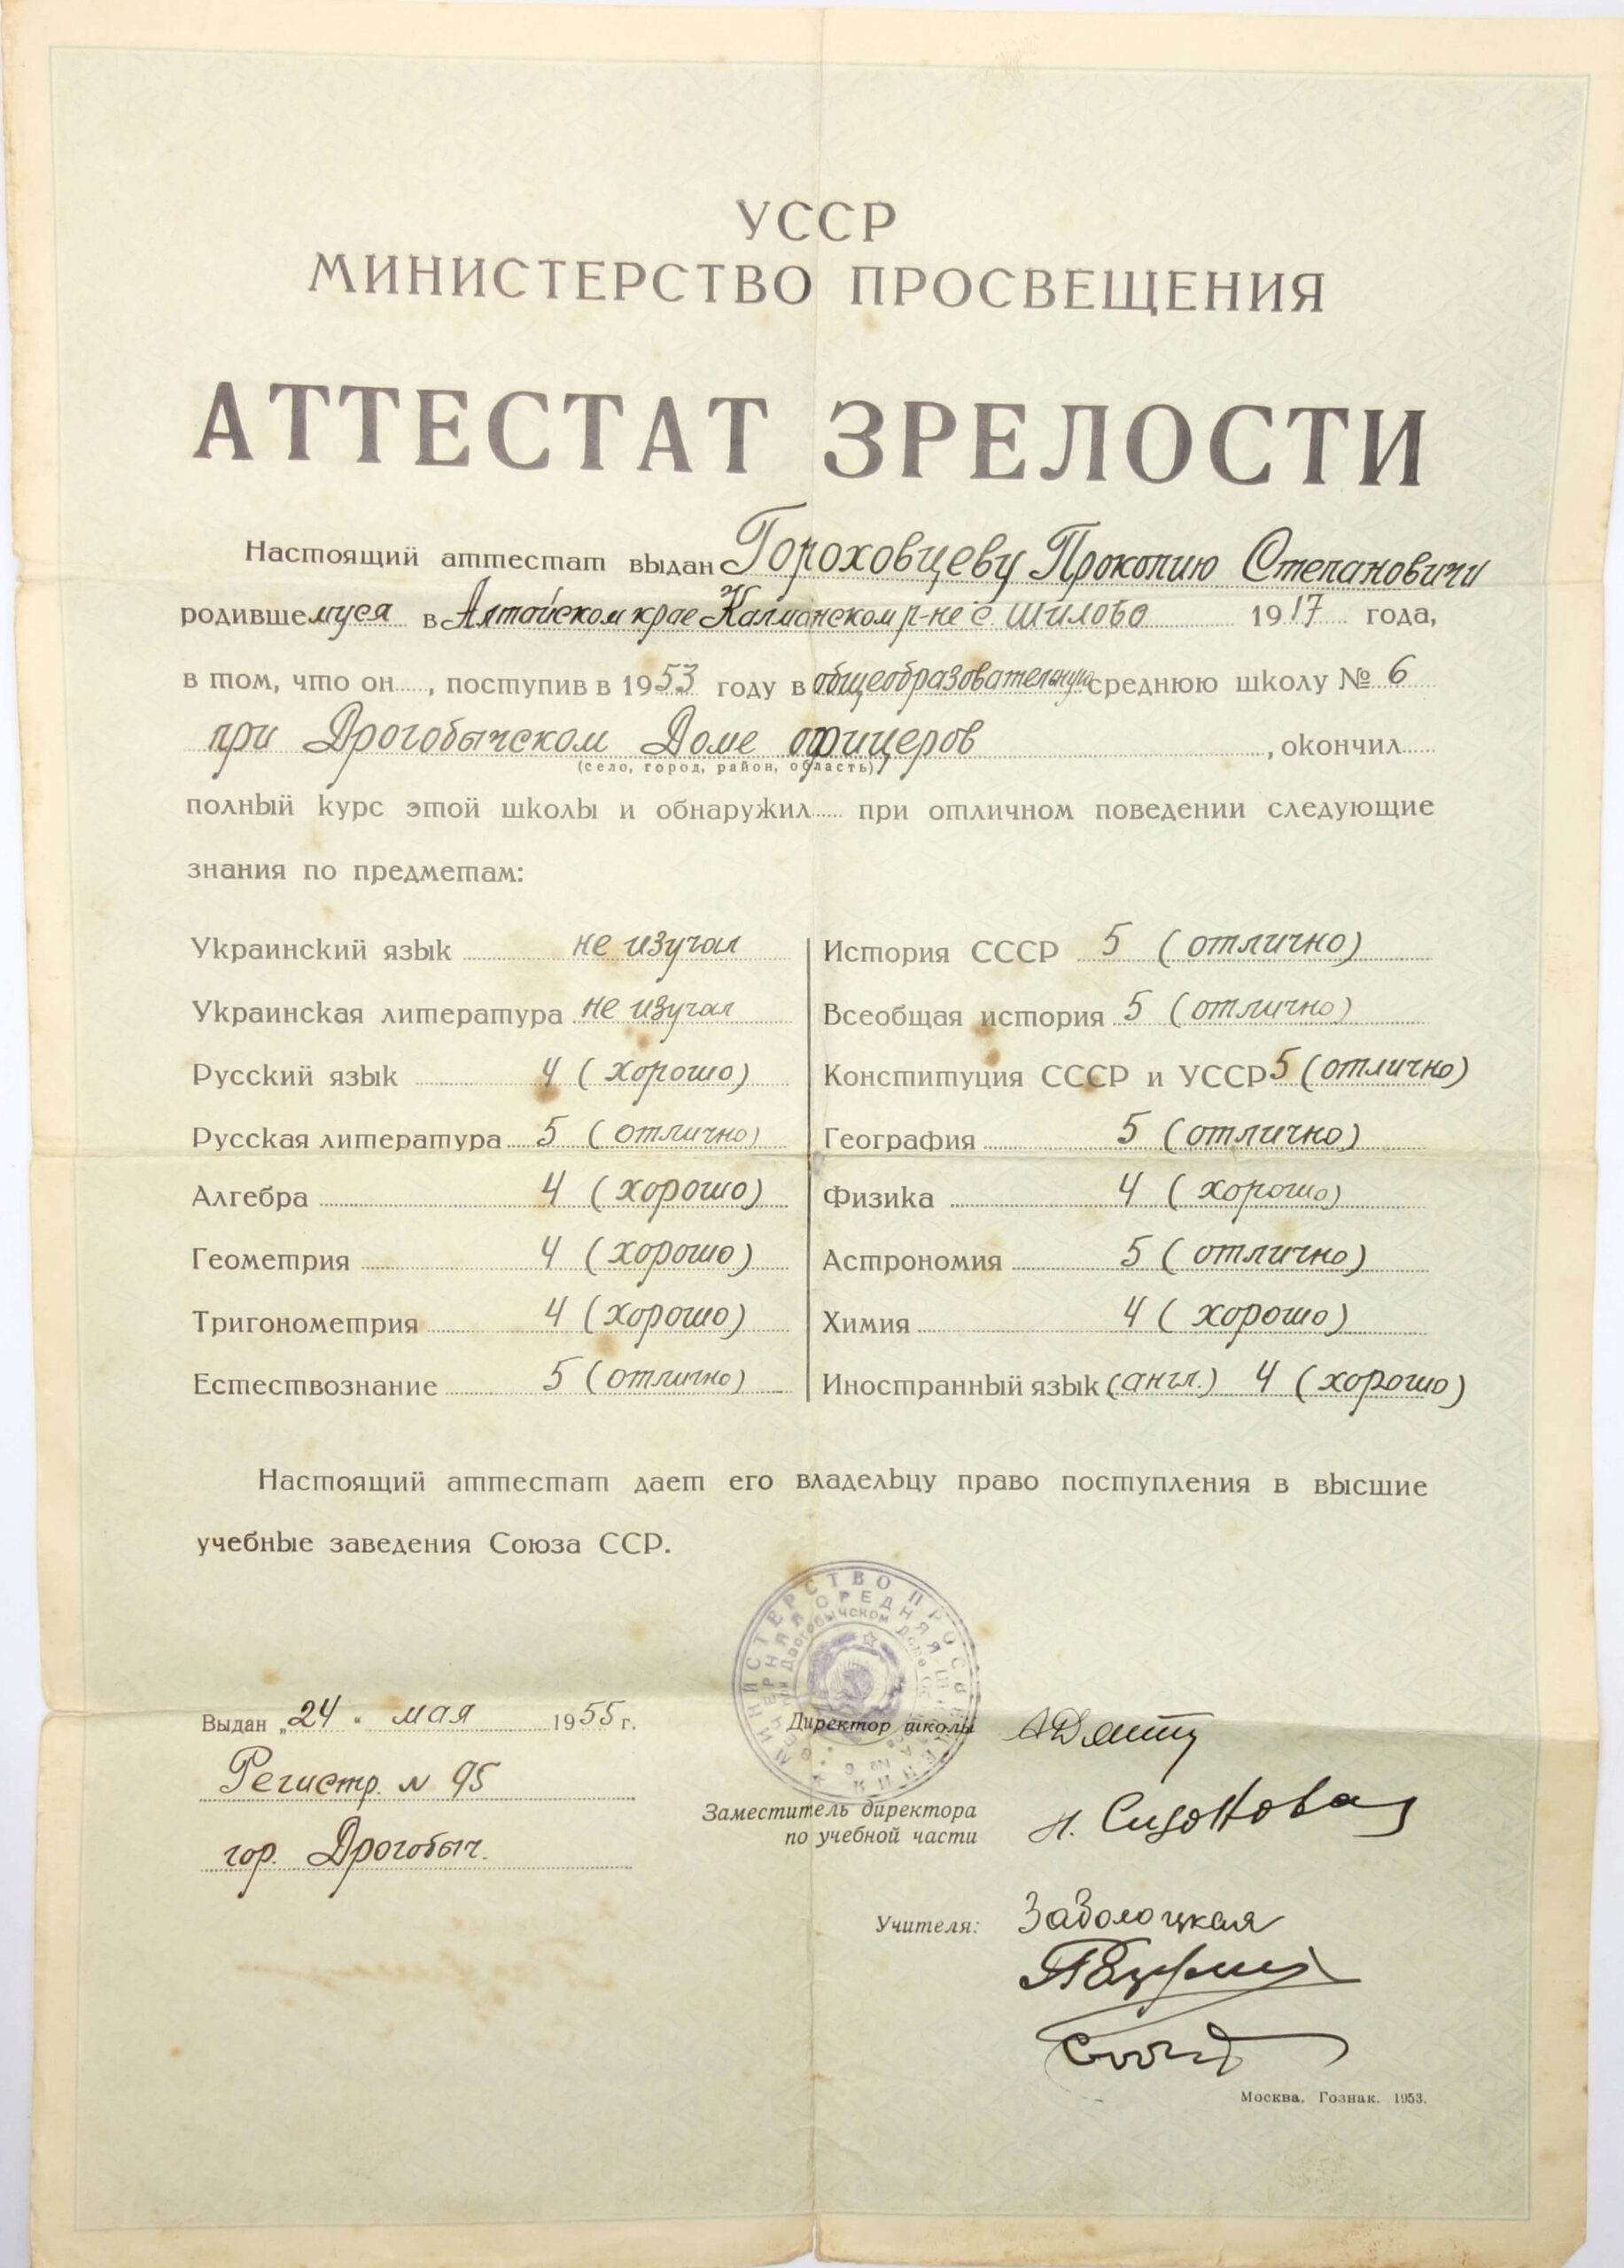 УССР
МИНИСТЕРСТВО ПРОСВЕЩЕНИЯ
АТТЕСТАТ ЗРЕЛОСТИ
Настоящий аттестат выдан Гороховцеву Прокопию Степановичу
родившемуся в Алтайском крае Калманском р-не с. Шилово 1917 года,
в том, что он, поступив в 1953 году в общеобразовательную среднюю школу № 6
при Дрогобычском Доме офицеров, окончил
(село, город, район, область)
полный курс этой школы и обнаружил при отличном поведении следующие
знания по предметам:
Украинский язык не изучал
Украинская литература не изучал
Русский язык 4 (хорошо)
Русская литература 5 (отлично)
Алгебра 4 (хорошо)
Геометрия 4 (хорошо)
Тригонометрия 4 (хорошо)
Естествознание 5 (отлично)
История СССР 5 (отлично)
Всеобщая история 5 (отлично)
Конституция СССР и УССР 5 (отлично)
География 5 (отлично)
Физика 4 (хорошо)
Астрономия 5 (отлично)
Химия 4 (хорошо)
Иностранный язык (англ.) 4 (хорошо)
Настоящий аттестат дает его владельцу право поступления в высшие
учебные заведения Союза ССР.
Выдан „24" мая 1955 г.
Регистр. № 95
гор. Дрогобыч.
Директор школы
Заместитель директора
по учебной части
Учителя: Заболоцкая
Москва. Гознак. 1953.